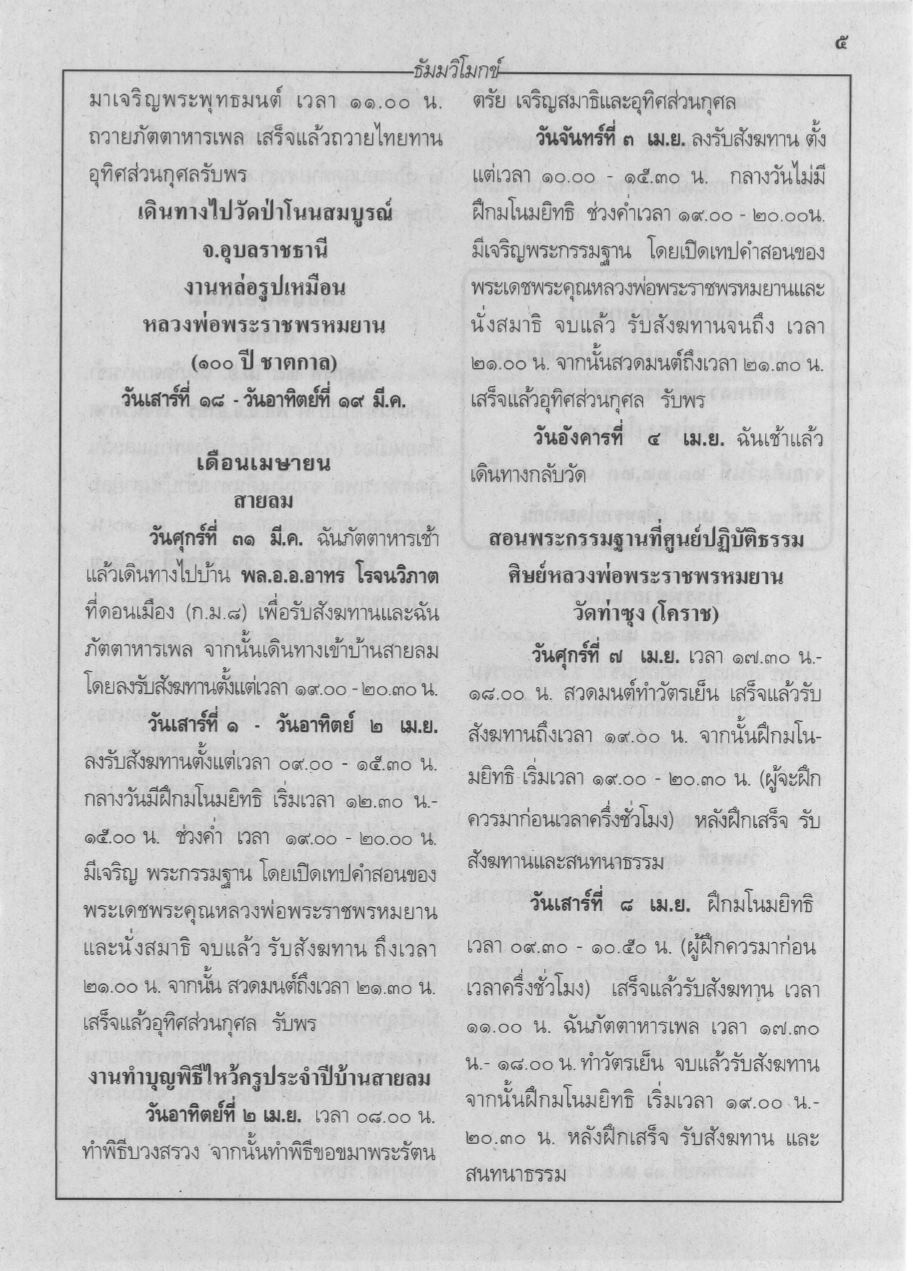 ๕
ธัมมวิโมกข์
มาเจริญพระพุทธมนต์ เวลา ๑๑.๐๐ น.
ถวายภัตตาหารเพล เสร็จแล้วถวายไทยทาน
อุทิศส่วนกุศลรับพร
เดินทางไปวัดป่าโนนสมบูรณ์
จ.อุบลราชธานี
งานหล่อรูปเหมือน
หลวงพ่อพระราชพรหมยาน
(๑๐๐ ปี ชาตกาล)
วันเสาร์ที่ ๑๘ - วันอาทิตย์ที่ ๑๙ มี.ค.
เดือนเมษายน
สายลม
วันศุกร์ที่ ๓๑ มี.ค. ฉันภัตตาหารเช้า
แล้วเดินทางไปบ้าน พล.อ.อ.อาทร โรจนวิภาต
ที่ดอนเมือง (ก.ม.๘) เพื่อรับสังฆทานและฉัน
ภัตตาหารเพล จากนั้นเดินทางเข้าบ้านสายลม
โดยลงรับสังฆทานตั้งแต่เวลา ๑๙.๐๐ -๒๐.๓๐ น.
วันเสาร์ที่ ๑ - วันอาทิตย์ ๒ เม.ย.
ลงรับสังฆทานตั้งแต่เวลา ๐๙.๐๐ - ๑๕.๓๐ น.
กลางวันมีฝึกมโนมยิทธิ เริ่มเวลา ๑๒.๓๐ น.-
๑๕.๐๐ น. ช่วงค่ำ เวลา ๑๙.๐๐ - ๒๐.๐๐ น.
มีเจริญ พระกรรมฐาน โดยเปิดเทปคำสอนของ
พระเดชพระคุณหลวงพ่อพระราชพรหมยาน
และนั่งสมาธิ จบแล้ว รับสังฆทาน ถึงเวลา
๒๑.๐๐ น. จากนั้น สวดมนต์ถึงเวลา ๒๑.๓๐ น.
เสร็จแล้วอุทิศส่วนกุศล รับพร
งานทำบุญพิธีไหว้ครูประจำปีบ้านสายลม
วันอาทิตย์ที่ ๒ เม.ย. เวลา ๐๘.๐๐ น.
ทำพิธีบวงสรวง จากนั้นทำพิธีขอขมาพระรัตน
ตรัย เจริญสมาธิและอุทิศส่วนกุศล
วันจันทร์ที่ ๓ เม.ย. ลงรับสังฆทาน ตั้ง
แต่เวลา ๑๐.๐๐ - ๑๕.๓๐ น. กลางวันไม่มี
ฝึกมโนมยิทธิ ช่วงค่ำเวลา ๑๙.๐๐ - ๒๐.๐๐น.
มีเจริญพระกรรมฐาน โดยเปิดเทปคำสอนของ
พระเดชพระคุณหลวงพ่อพระราชพรหมยานและ
นั่งสมาธิ จบแล้ว รับสังฆทานจนถึง เวลา
๒๑.๐๐ น. จากนั้นสวดมนต์ถึงเวลา ๒๑.๓๐ น.
เสร็จแล้วอุทิศส่วนกุศล รับพร
วันอังคารที่ ๔ เม.ย. ฉันเช้าแล้ว
เดินทางกลับวัด
สอนพระกรรมฐานที่ศูนย์ปฏิบัติธรรม
ศิษย์หลวงพ่อพระราชพรหมยาน
วัดท่าซุง (โคราช)
วันศุกร์ที่ ๗ เม.ย. เวลา ๑๗.๓๐ น.-
๑๘.๐๐ น. สวดมนต์ทำวัตรเย็น เสร็จแล้วรับ
สังฆทานถึงเวลา ๑๙.๐๐ น. จากนั้นฝึกมโน-
มยิทธิ เริ่มเวลา ๑๙.๐๐ - ๒๐.๓๐ น. (ผู้จะฝึก
ควรมาก่อนเวลาครึ่งชั่วโมง) หลังฝึกเสร็จ รับ
สังฆทานและสนทนาธรรม
วันเสาร์ที่ ๘ เม.ย. ฝึกมโนมยิทธิ
เวลา ๐๙.๓๐ - ๑๐.๕๐ น. (ผู้ฝึกควรมาก่อน
เวลาครึ่งชั่วโมง) เสร็จแล้วรับสังฆทาน เวลา
๑๑.๐๐ น. ฉันภัตตาหารเพล เวลา ๑๗.๓๐
น.- ๑๘.๐๐ น. ทำวัตรเย็น จบแล้วรับสังฆทาน
จากนั้นฝึกมโนมยิทธิ เริ่มเวลา ๑๙.๐๐ น.-
๒๐.๓๐ น. หลังฝึกเสร็จ รับสังฆทาน และ
สนทนาธรรม